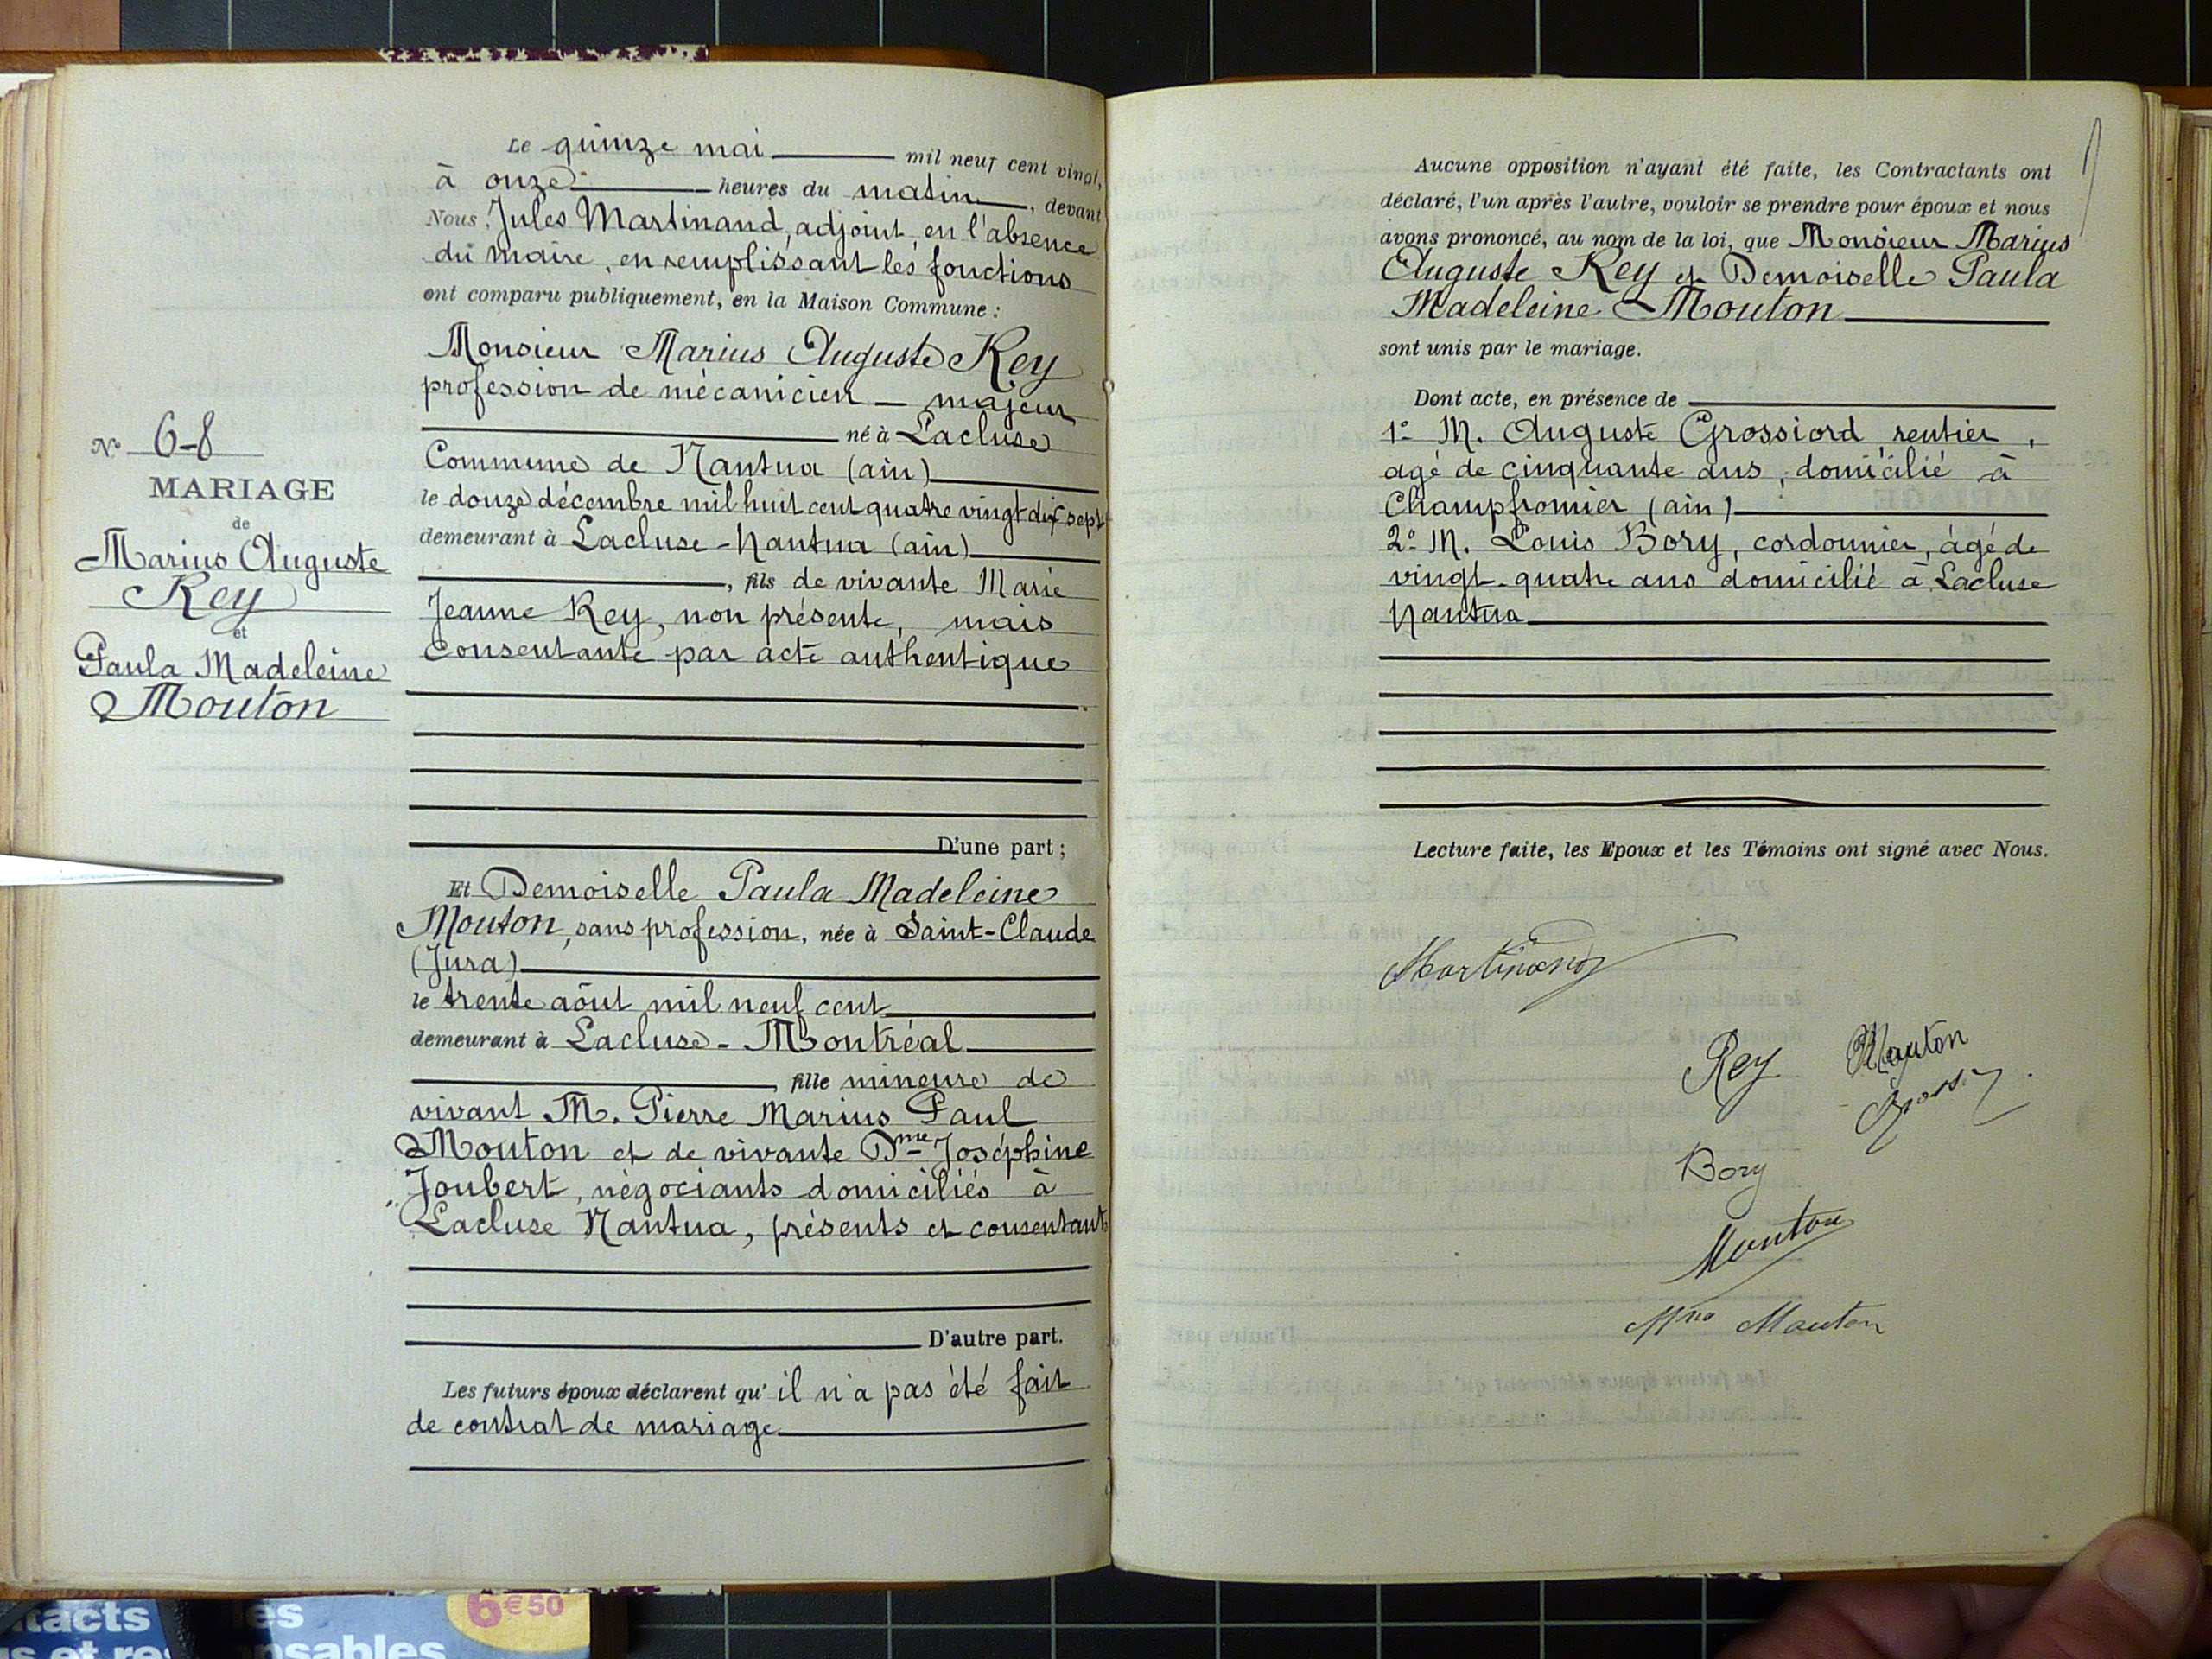 Le quinze mai mil neuf cent vingt,
à onze heures du matin, devant
Nous, Jules Martinand, adjoint, en l'absence
du maire, en remplissant les fonctions
ont comparu publiquement, en la Maison Commune :
Monsieur Marius Auguste Rey
profession de mécanicien — majeur
né à Lacluse
Commune de Nantua (ain)
le douze décembre mil huit cent quatre vingt dix sept
demeurant à Lacluse - Nantua (ain)
, fils de vivante Marie
Jeanne Rey, non présente, mais
consentante par acte authentique
D'une part ;
Et Demoiselle Paula Madeleine
Mouton, sans profession, née à Saint-Claude
(Jura)
le trente aôut mil neuf cent
demeurant à Lacluse - Montréal
fille mineure de
vivant M. Pierre Marius Paul
Mouton et de vivante Dme Joséphine
Joubert, négociants domiciliés à
Lacluse Nantua, présents et consentants
D'autre part.
Les futurs époux déclarent qu' il n'a pas été fait
de contrat de mariage
N° 68
MARIAGE
de
Marius Auguste
Rey
et
Paula Madeleine
Mouton
Aucune opposition n'ayant été faite, les Contractants ont
déclaré, l'un après l'autre, vouloir se prendre pour époux et nous
avons prononcé, au nom de la loi, que Monsieur Marius
Auguste Rey et Demoiselle Paula
Madeleine Mouton
sont unis par le mariage.
Dont acte, en présence de
1° M. Auguste Grossiord, rentier,
agé de cinquante ans, domicilié à
Champfromier (ain)
2° M. Louis Bory, cordonnier, âgé de
vingt-quatre ans domicilié à Lacluse
Nantua
Lecture faite, les Epoux et les Témoins ont signé avec Nous.
Martinand
Rey Mouton
Bory
Mouton
Mme Mouton
tacts
es
nsables
6€50